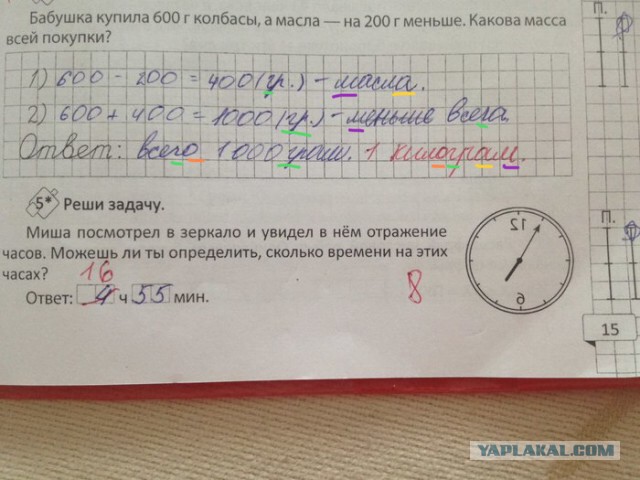 Бабушка купила 600 г колбасы, а масла — на 200 г меньше. Какова масса
всей покупки?
П.
1) 600 - 200 = 400 (гр.) - масла.
2) 600 + 400 = 1000 (гр.) - меньше всего.
Ответ: всего 1000 грам. 1 килограм.
5* Реши задачу.
Миша посмотрел в зеркало и увидел в нём отражение
часов. Можешь ли ты определить, сколько времени на этих
часах?
16
Ответ: 4 ч 55 мин.
8
12
6
П.
15
YAPLAKAL.COM